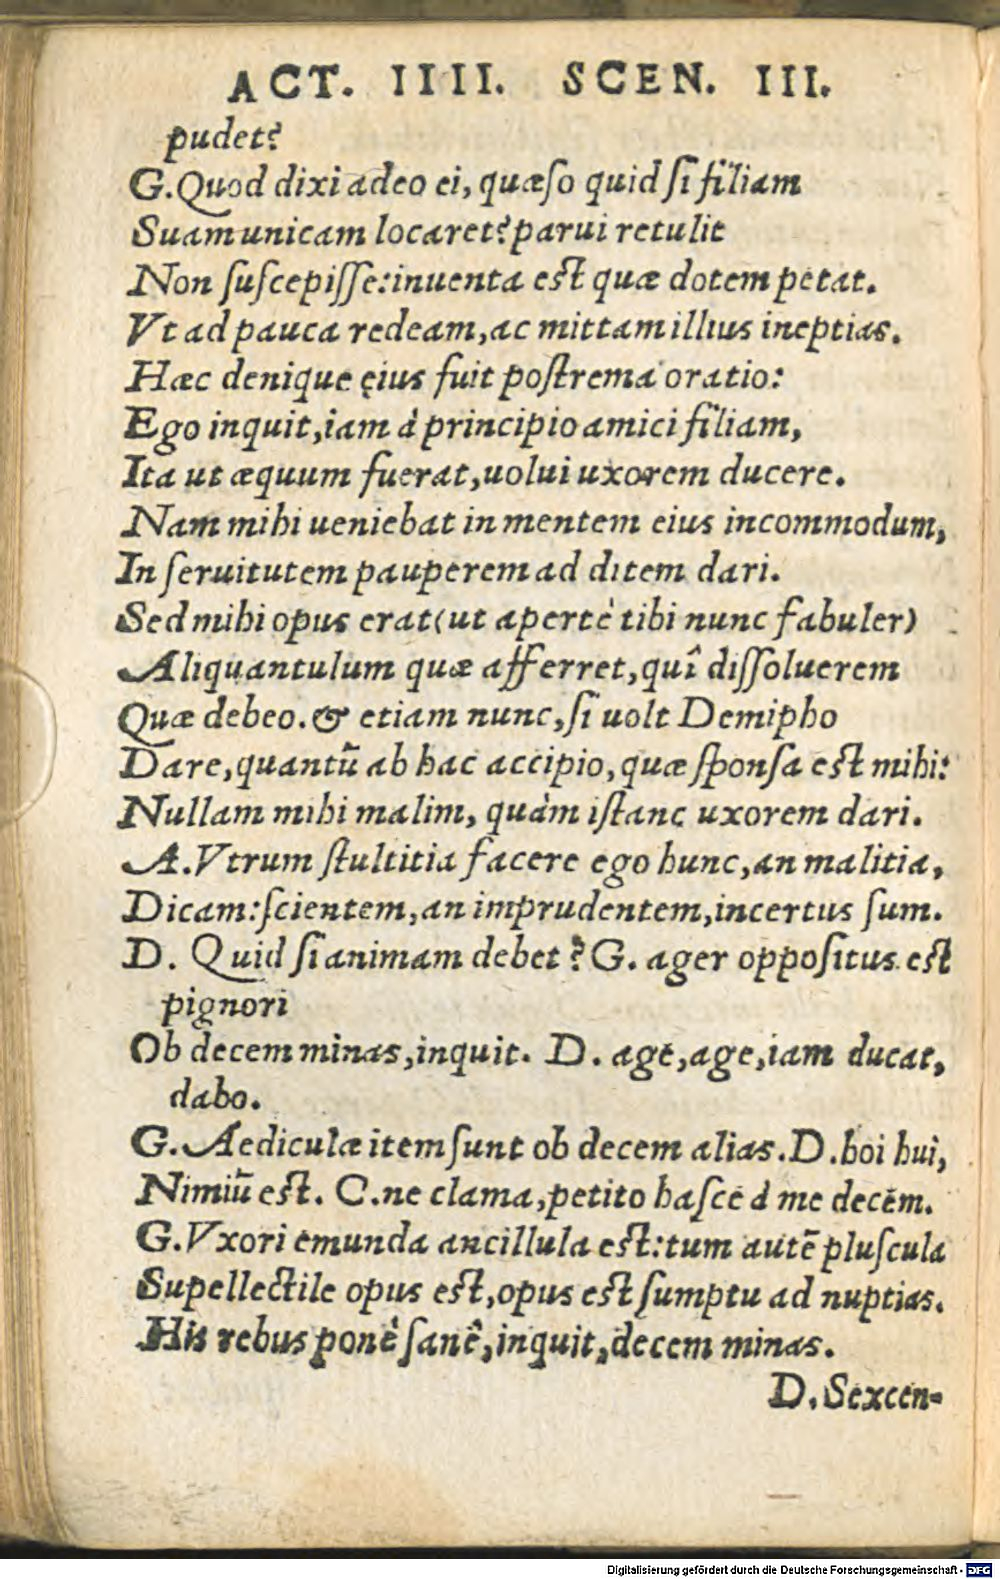 ACT. IIII. SCEN. III.
pudet?
G.Quod dixi adeo ei, quæſo quid ſi filiam
Suam unicam locaret? parui retulit
Non ſuſcepiſſe: inuenta eſt quæ dotem petat.
Vt ad pauca redeam, ac mittam illius ineptias.
Hæc denique ęius fuit poſtrema oratio:
Ego inquit, iam à principio amici filiam,
Ita ut æquum fuerat, uolui uxorem ducere.
Nam mihi ueniebat in mentem eius incommodum,
In ſeruitutem pauperem ad ditem dari.
Sed mihi opus erat (ut apertè tibi nunc fabuler)
Aliquantulum quæ afferret, quî diſſoluerem
Quæ debeo. & etiam nunc, ſi uolt Demipho
Dare, quantũ ab hac accipio, quæ ſponſa eſt mihi:
Nullam mihi malim, quàm iſtanc uxorem dari.
A.Vtrum ſtultitia facere ego hunc, an malitia,
Dicam: ſcientem, an imprudentem, incertus ſum.
D. Quid ſi animam debet? G. ager oppoſitus eſt
pignori
Ob decem minas, inquit. D. age, age, iam ducat,
dabo.
G. Aediculæ item ſunt ob decem alias. D. hoi hui,
Nimiũ eſt. C. ne clama, petito haſce à me decem.
G. Vxori emunda ancillula eſt: tum autē pluſcula
Supellectile opus eſt, opus eſt ſumptu ad nuptias.
His rebus ponè ſanê, inquit, decem minas.
D. Sexcen-
Digitalisierung gefördert durch die Deutsche Forschungsgemeinschaft - DFG